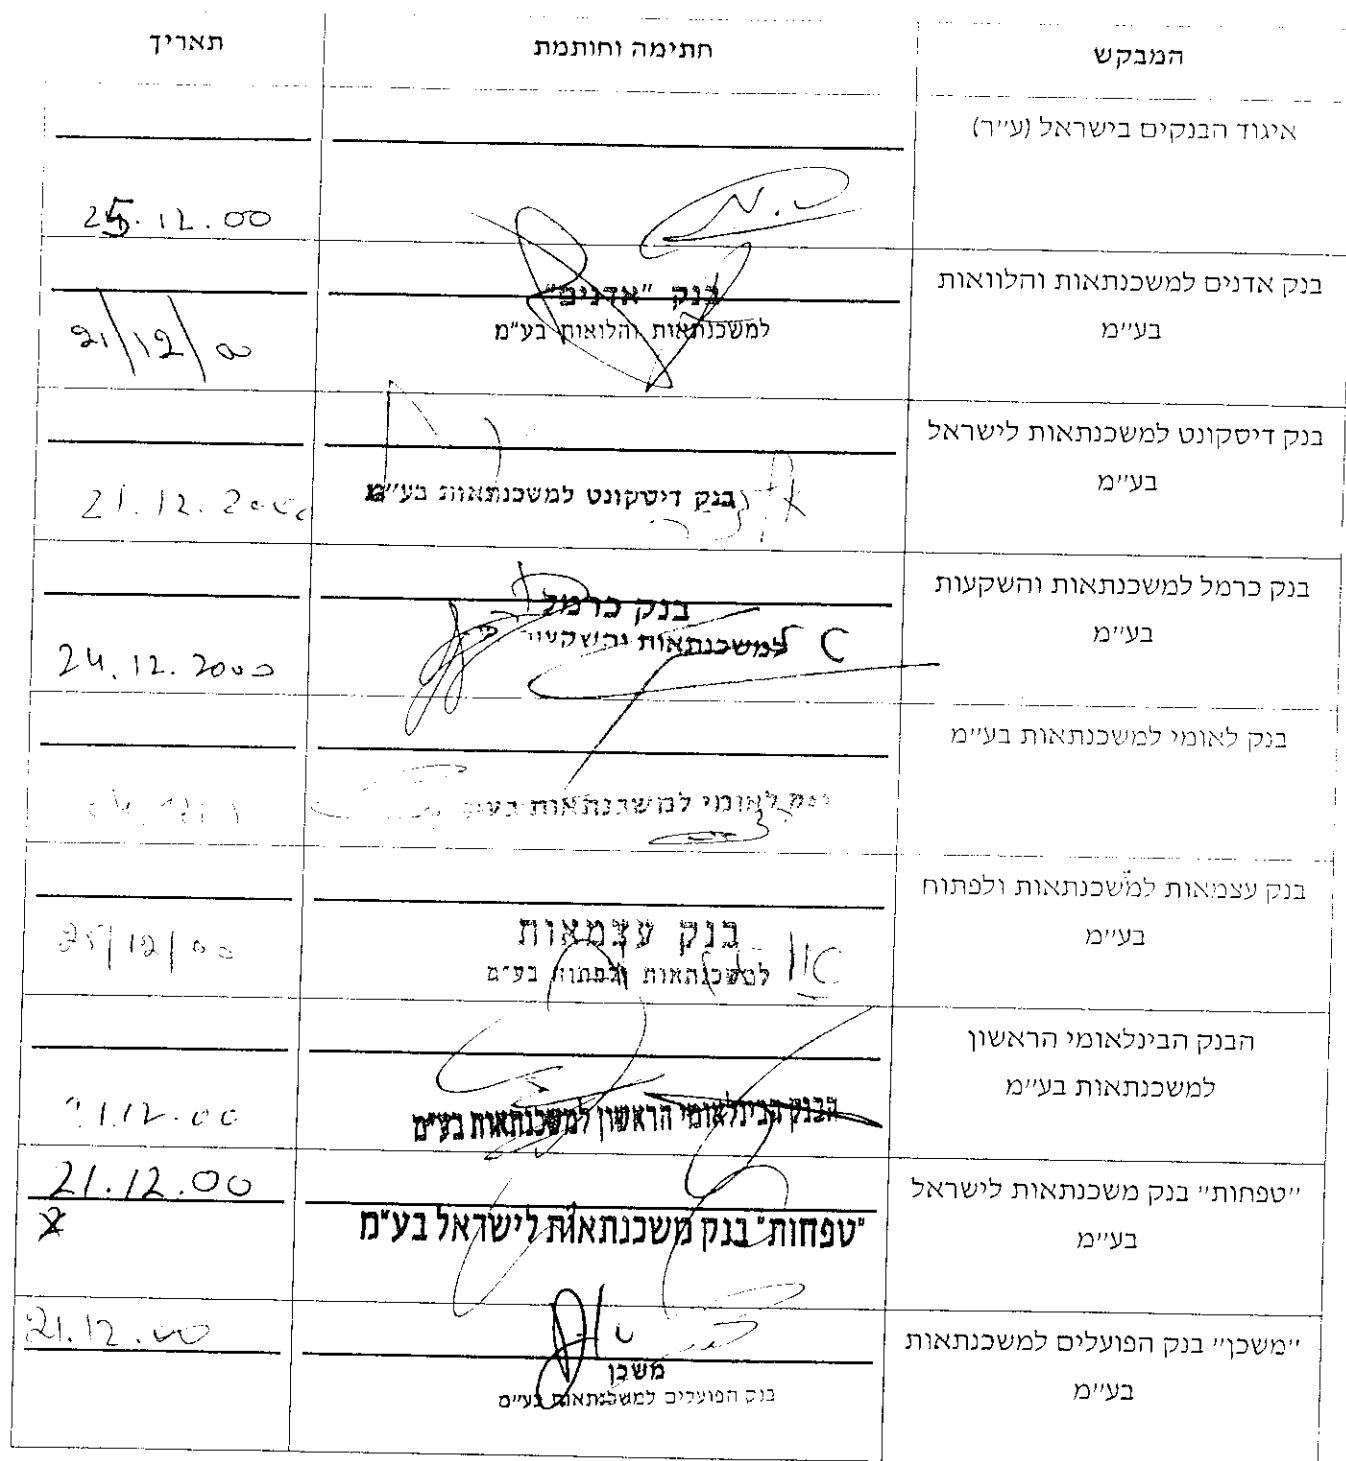 המבקש חתימה וחותמת תאריך
איגוד הבנקים בישראל (ע"ר)
25.12.00
בנק אדנים למשכנתאות והלוואות
בע"מ
בנק "אדנים"
למשכנתאות והלואות בע"מ
21/12/00
בנק דיסקונט למשכנתאות לישראל
בע"מ
בנק דיסקונט למשכנתאות בע"מ
21.12.2000
בנק כרמל למשכנתאות והשקעות
בע"מ
בנק כרמל
למשכנתאות והשקעות
24.12.2000
בנק לאומי למשכנתאות בע"מ
בנק לאומי למשכנתאות בע"מ
בנק עצמאות למשכנתאות ולפתוח
בע"מ
בנק עצמאות
למשכנתאות ולפתוח בע"מ
25/12/00
הבנק הבינלאומי הראשון
למשכנתאות בע"מ
הבנק הבינלאומי הראשון למשכנתאות בע"מ
21.12.00
"טפחות" בנק משכנתאות לישראל
בע"מ
"טפחות" בנק משכנתאות לישראל בע"מ
21.12.00
"משכן" בנק הפועלים למשכנתאות
בע"מ
משכן
בנק הפועלים למשכנתאות בע"מ
21.12.00